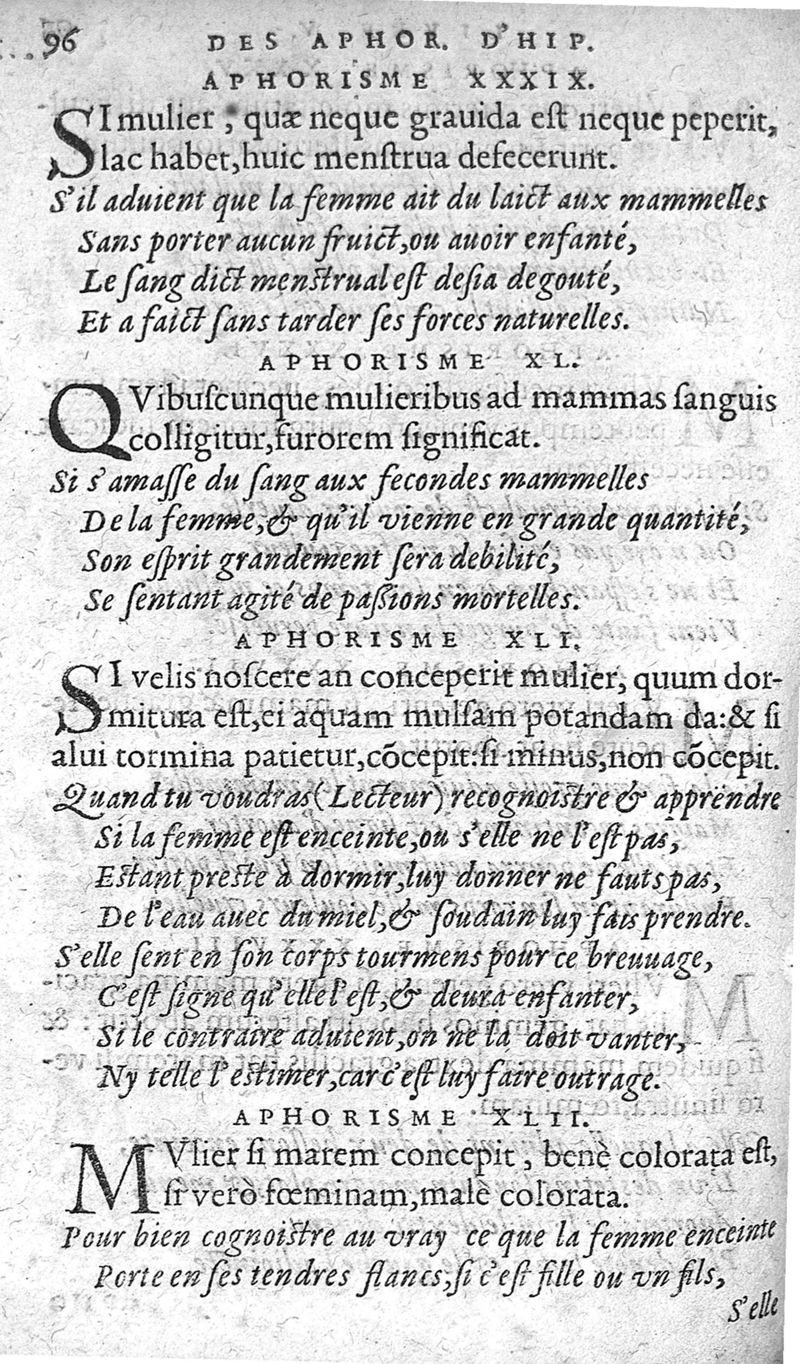 96 DES APHOR. D'HIP.
APHORISME XXXIX.
SI mulier, quæ neque grauida eſt neque peperit,
lac habet, huic menſtrua defecerunt.
S'il aduient que la femme ait du laict aux mammelles
Sans porter aucun fruict, ou auoir enfanté,
Le ſang dict menstrual eſt deſia degouté,
Et a faict ſans tarder ſes forces naturelles.
APHORISME XL.
QVibuſcunque mulieribus ad mammas ſanguis
colligitur, furorem ſignificat.
Si s'amaſſe du ſang aux fecondes mammelles
De la femme, & qu'il vienne en grande quantité,
Son eſprit grandement ſera debilité,
Se ſentant agité de paſsions mortelles.
APHORISME XLI.
SI velis noſcere an conceperit mulier, quum dor-
mitura eſt, ei aquam mulſam potandam da: & ſi
alui tormina patietur, cõcepit: ſi minus, non cõcepit.
Quand tu voudras (Lecteur) recognoiſtre & apprendre
Si la femme eſt enceinte, ou s'elle ne l'eſt pas,
Estant preste à dormir, luy donner ne fauts pas,
De l'eau auec du miel, & ſoudain luy fais prendre.
S'elle ſent en ſon corps tourmens pour ce breuuage,
C'eſt ſigne qu'elle l'eſt, & deura enfanter,
Si le contraire aduient, on ne la doit vanter,
Ny telle l'estimer, car c'eſt luy faire outrage.
APHORISME XLII.
MVlier ſi marem concepit, benè colorata eſt,
ſi verò fœminam, malè colorata.
Pour bien cognoiſtre au vray ce que la femme enceinte
Porte en ſes tendres flancs, ſi c'eſt fille ou vn fils,
S'elle